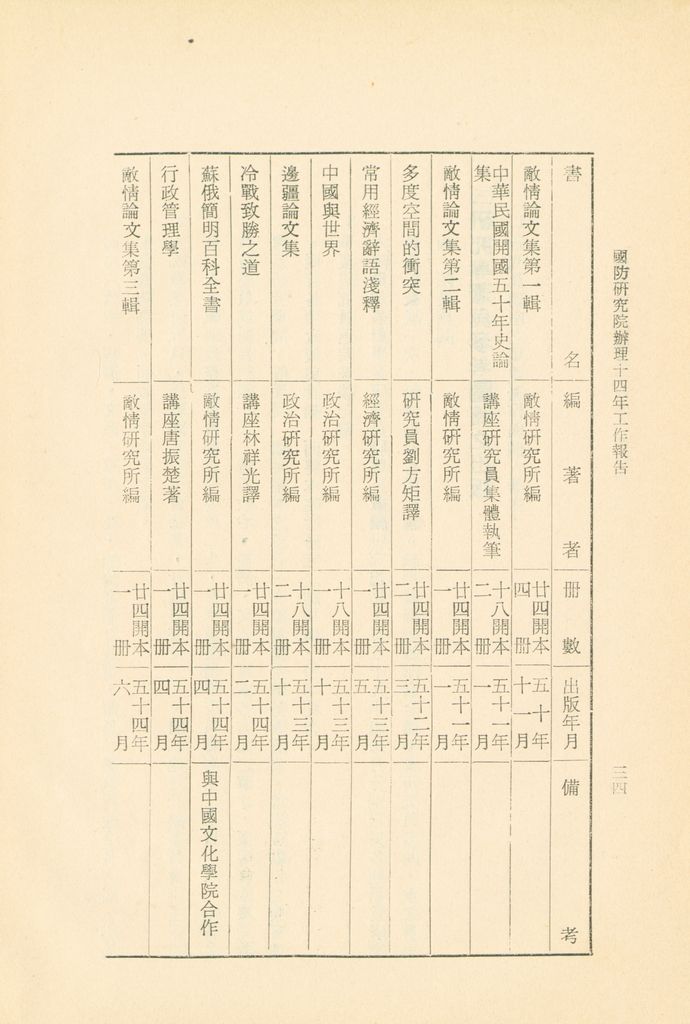 國防研究院辦理十四年工作報告
三四
書名 編著者 冊數 出版年月 備考
敵情論文集第一輯 敵情研究所編 廿四開本四冊 五十年十一月
中華民國開國五十年史論集 講座研究員集體執筆 十八開本二冊 五十一年一月
敵情論文集第二輯 敵情研究所編 廿四開本一冊 五十一年一月
多度空間的衝突 研究員劉方矩譯 廿四開本二冊 五十二年三月
常用經濟辭語淺釋 經濟研究所編 廿四開本一冊 五十三年五月
中國與世界 政治研究所編 十八開本一冊 五十三年十月
邊疆論文集 政治研究所編 十八開本二冊 五十三年十月
冷戰致勝之道 講座林祥光譯 廿四開本一冊 五十四年二月
蘇俄簡明百科全書 敵情研究所編 廿四開本一冊 五十四年四月 與中國文化學院合作
行政管理學 講座唐振楚著 廿四開本一冊 五十四年四月
敵情論文集第三輯 敵情研究所編 廿四開本一冊 五十四年六月